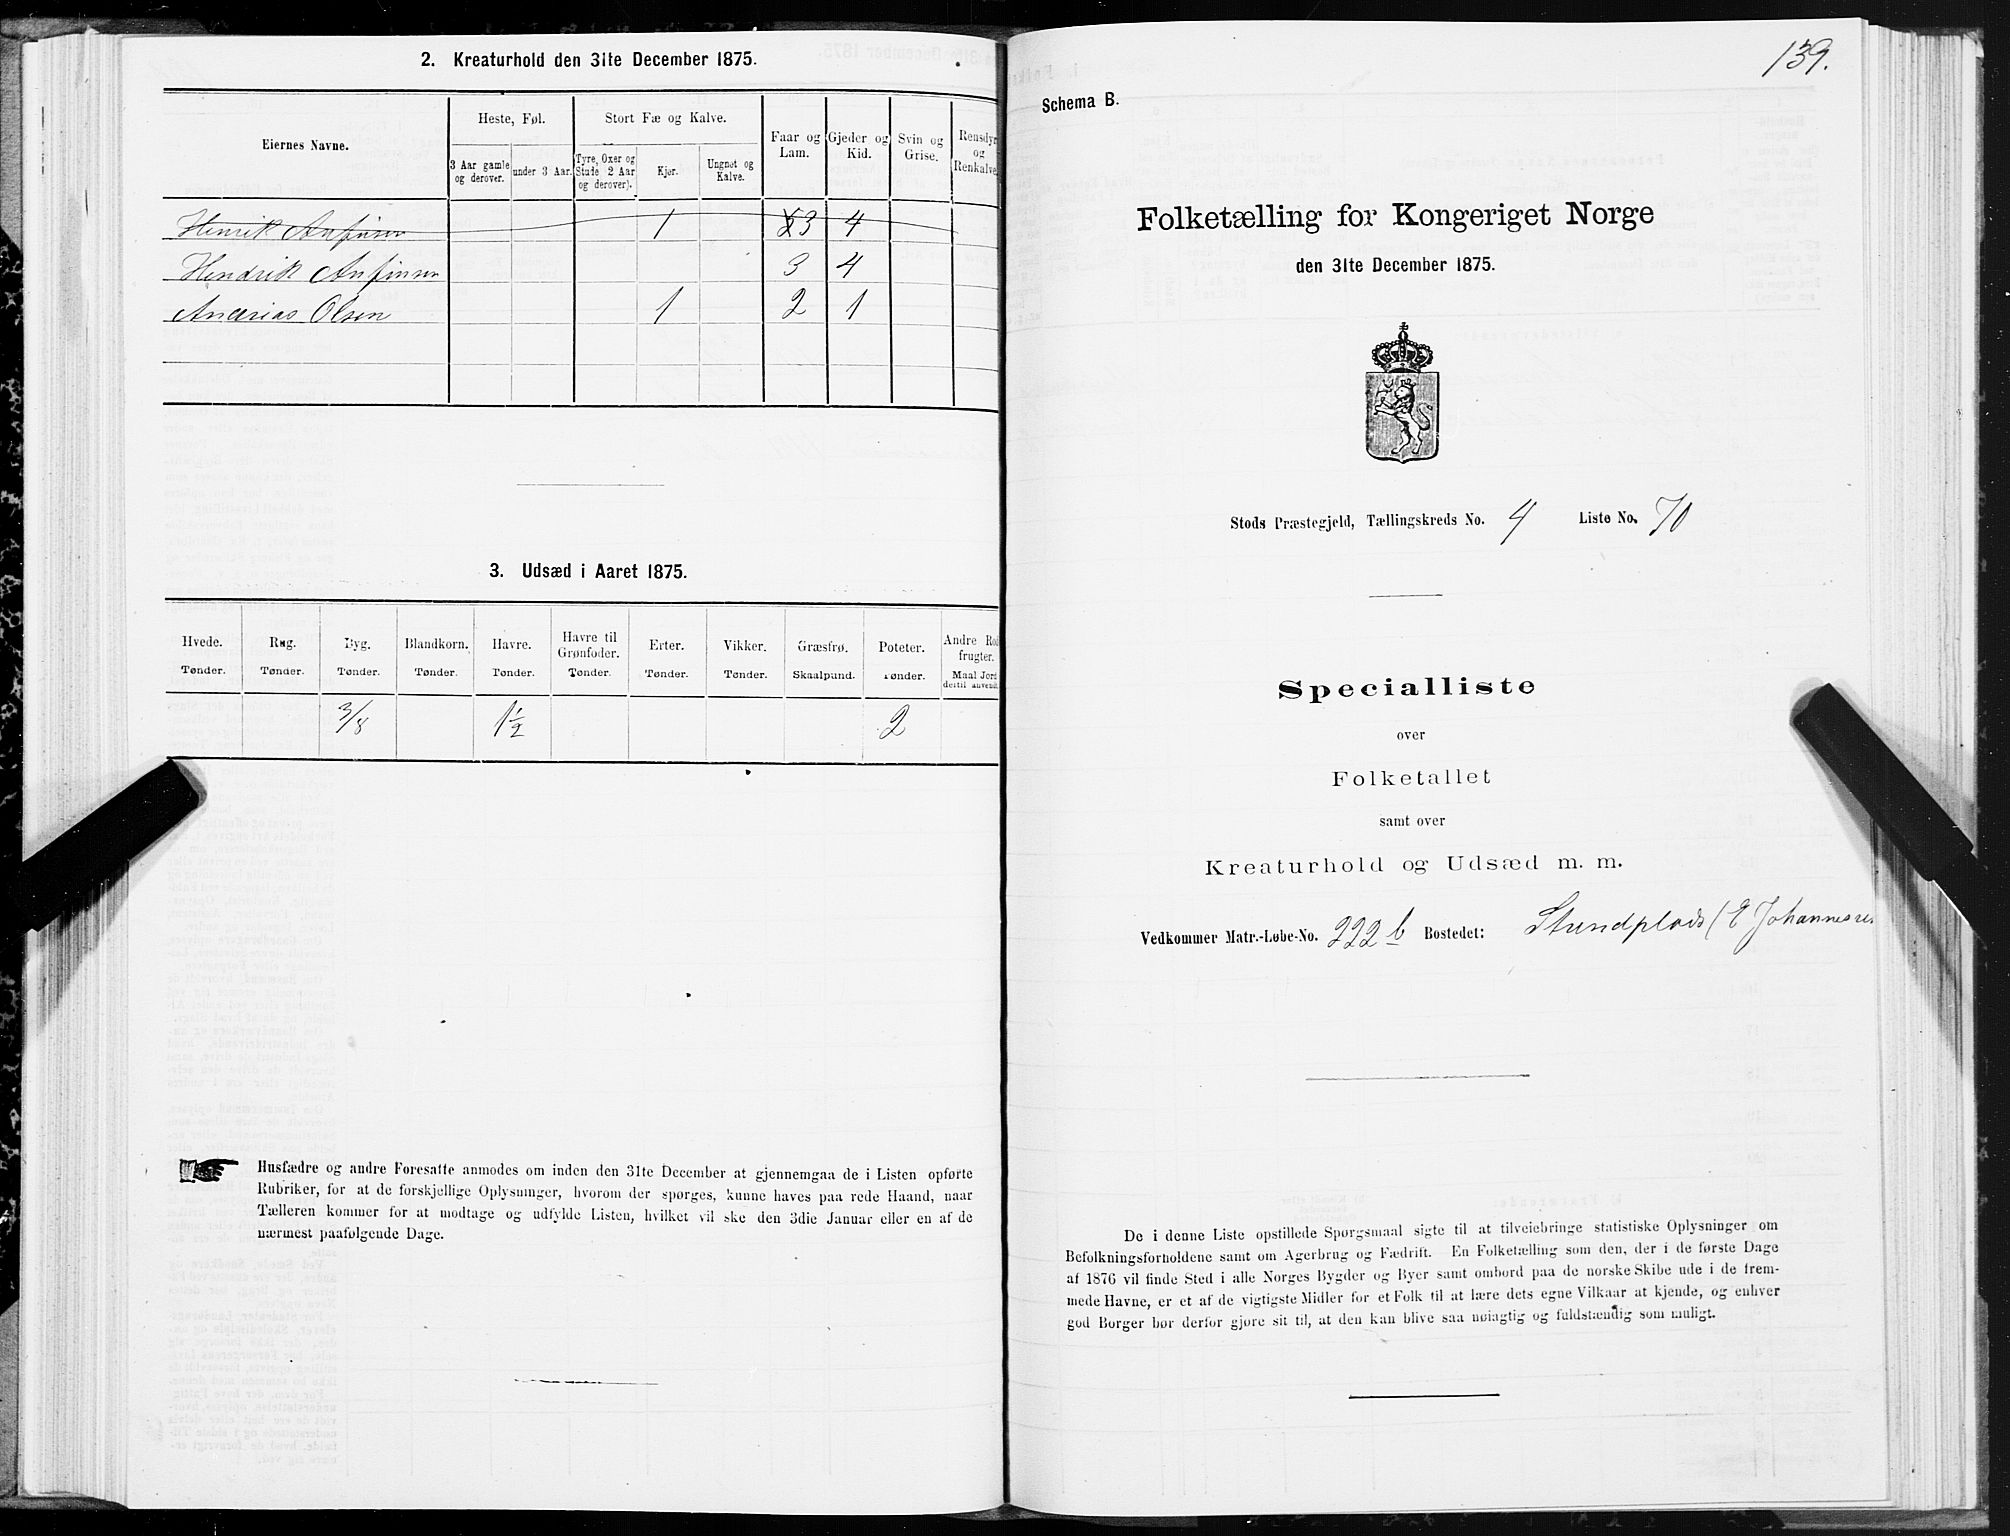 2. Kreaturhold den 31te December 1875.
Eiernes Navne.
Heste, Føl.
Stort Fæ og Kalve.
Faar og Lam.
Gjeder og Kid.
Svin og Grise.
Rensdyr og Renkalve.
3 Aar gamle og derover.
under 3 Aar.
Tyre, Oxer og Stude 2 Aar og derover).
Kjør.
Ungnøt og Kalve.
Henrik Anfinsen 1 3 4
Hendrik Anfinsen 3 4
Andrias Olsen 1 2 1
3. Udsæd i Aaret 1875.
Hvede. Rug. Byg. Blandkorn. Havre. Havre til Grønfoder. Erter. Vikker. Græsfrø. Poteter. Andre Rodfrugter.
Tønder. Tønder. Tønder. Tønder. Tønder. Tønder. Tønder. Tønder. Skaalpund. Tønder. Maal Jord dertil anvendt
3/8 1½ 2
Husfædre og andre Foresatte anmodes om inden den 31te December at gjennemgaa de i Listen opførte
Rubriker, for at de forskjellige Oplysninger, hvorom der spørges, kunne haves paa rede Haand, naar
Tælleren kommer for at modtage og udfylde Listen, hvilket vil ske den 3die Januar eller en af de
nærmest paafølgende Dage.
139.
Schema B.
Folketælling for Kongeriget Norge
den 31te December 1875.
Stods Præstegjeld, Tællingskreds No. 4 Liste No. 70
Specialliste
over
Folketallet
samt over
Kreaturhold og Udsæd m. m.
Vedkommer Matr.-Løbe-No. 222 b Bostedet: Strindplads (E Johannesen
De i denne Liste opstillede Spørgsmaal sigte til at tilveiebringe statistiske Oplysninger om
Befolkningsforholdene samt om Agerbrug og Fædrift. En Folketælling som den, der i de første Dage
af 1876 vil finde Sted i alle Norges Bygder og Byer samt ombord paa de norske Skibe ude i de frem-
mede Havne, er et af de vigtigste Midler for et Folk til at lære dets egne Vilkaar at kjende, og enhver
god Borger bør derfor gjøre sit til, at den kan blive saa nøiagtig og fuldstændig som muligt.